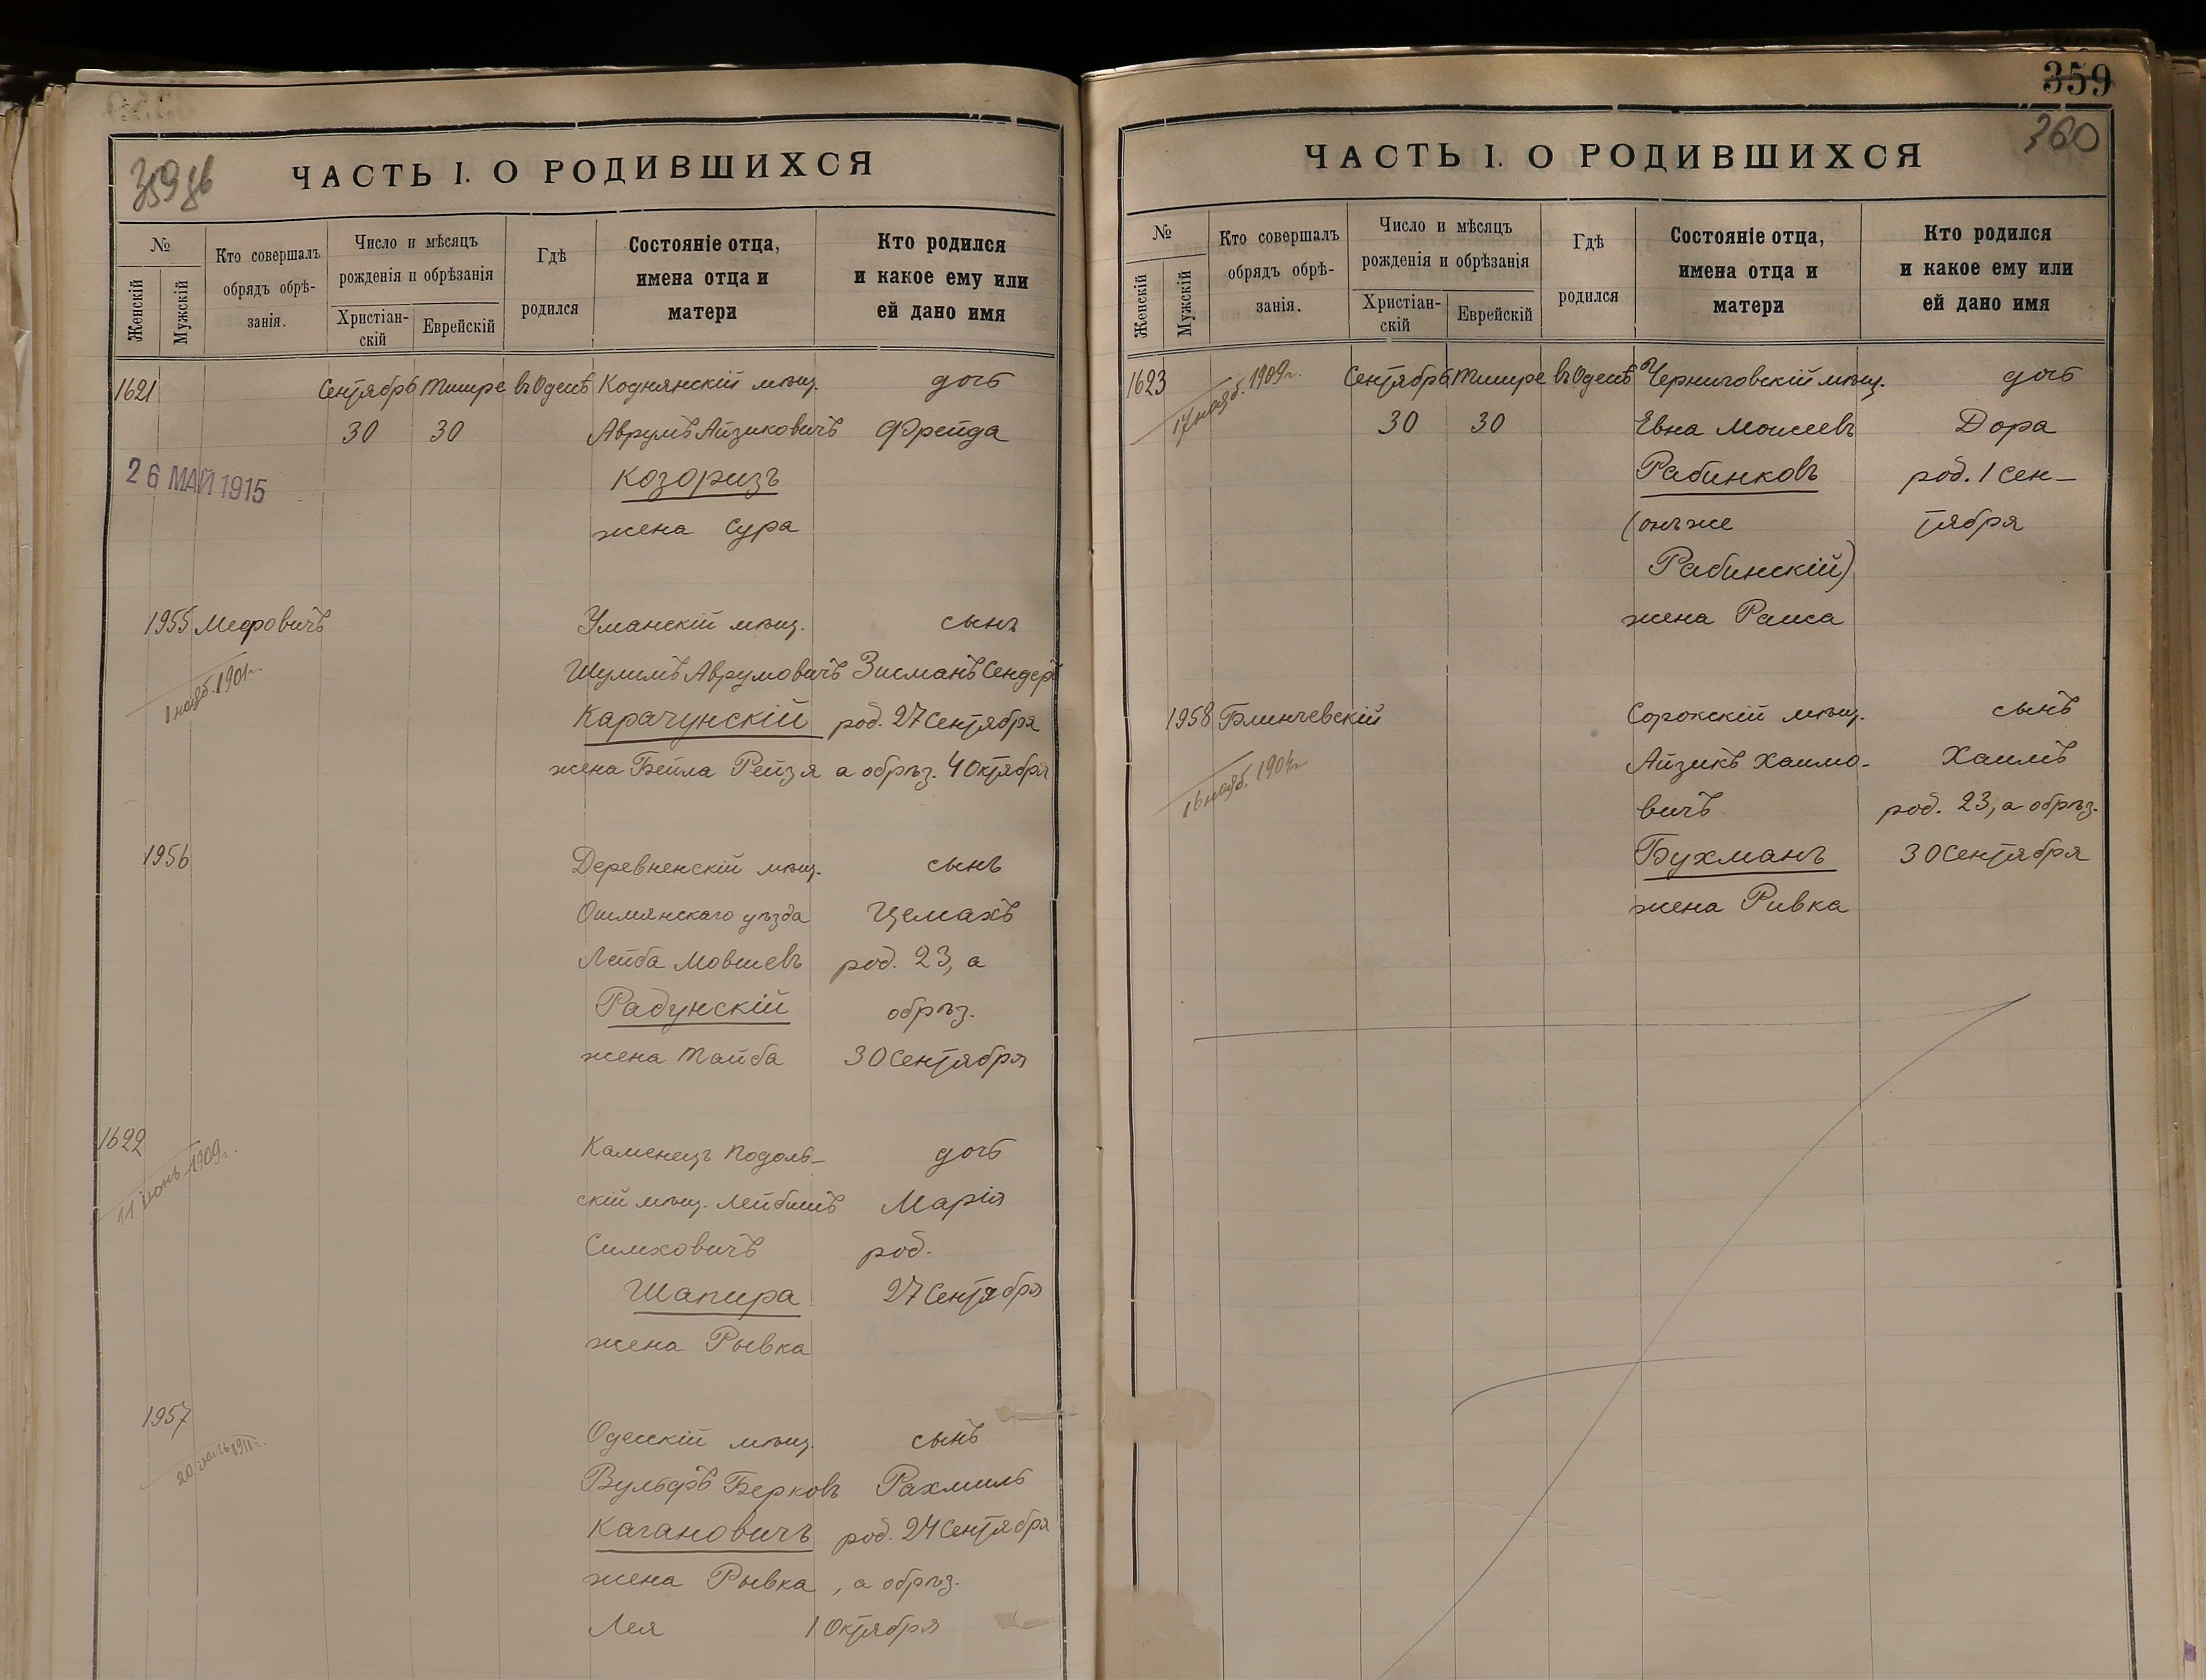 359
359 об
ЧАСТЬ I. О РОДИВШИХСЯ
№
Женскій
Мужскій
Кто совершалъ
обрядъ обрѣ-
занія.
Число и мѣсяцъ
рожденія и обрѣзанія
Христіан-
скій
Еврейскій
Гдѣ
родился
Состояніе отца,
имена отца и
матери
Кто родился
и какое ему или
ей дано имя
1621 Сентябрь Тишре въ Одессѣ Коднянскій мѣщ. дочь
30 30 Аврумъ Айзиковичъ Фрейда
26 МАЙ 1915
Козоризъ
жена Сура
1955 Меєровичъ Уманскій мѣщ. сынъ
1 нояб. 1901 г.
Шулимъ Аврумовичъ Зисманъ Сендеръ
Карачунскій род. 27 Сентября
жена Бейла Рейзя а обрѣз. 4 Октября
1956 Деревненскій мѣщ. сынъ
Ошмянскаго уѣзда Цемахъ
Лейба Мовшевъ род. 23, а
Радунскій обрѣз.
жена Тайба 30 Сентября
1622 Каменецъ Подоль- дочь
11 іюнь 1909 г.
скій мѣщ. Лейбишъ Марія
Симховичъ род.
Шапира 27 Сентября
жена Рывка
1957 Одесскій мѣщ. сынъ
Вульфъ Берковъ Рахмиль
Кагановичъ род. 24 Сентября
жена Рывка , а обрѣз.
Лея 1 Октября
360
ЧАСТЬ I. О РОДИВШИХСЯ
№
Женскій
Мужскій
Кто совершалъ
обрядъ обрѣ-
занія.
Число и мѣсяцъ
рожденія и обрѣзанія
Христіан-
скій
Еврейскій
Гдѣ
родился
Состояніе отца,
имена отца и
матери
Кто родился
и какое ему или
ей дано имя
1623 17 нояб. 1909 г. Сентября Тишре въ Одессѣ Черниговскій мѣщ. дочь
30 30 Евна Моисеевъ Дора
Рабинковъ род. 1 Сен-
(онъ же тября
Рабинскій)
жена Раиса
1958 Блинчевскій Сорокскій мѣщ. сынъ
16 нояб. 1904 г.
Айзикъ Хаимо- Хаимъ
вичъ род. 23, а обрѣз.
Бухманъ 30 Сентября
жена Ривка